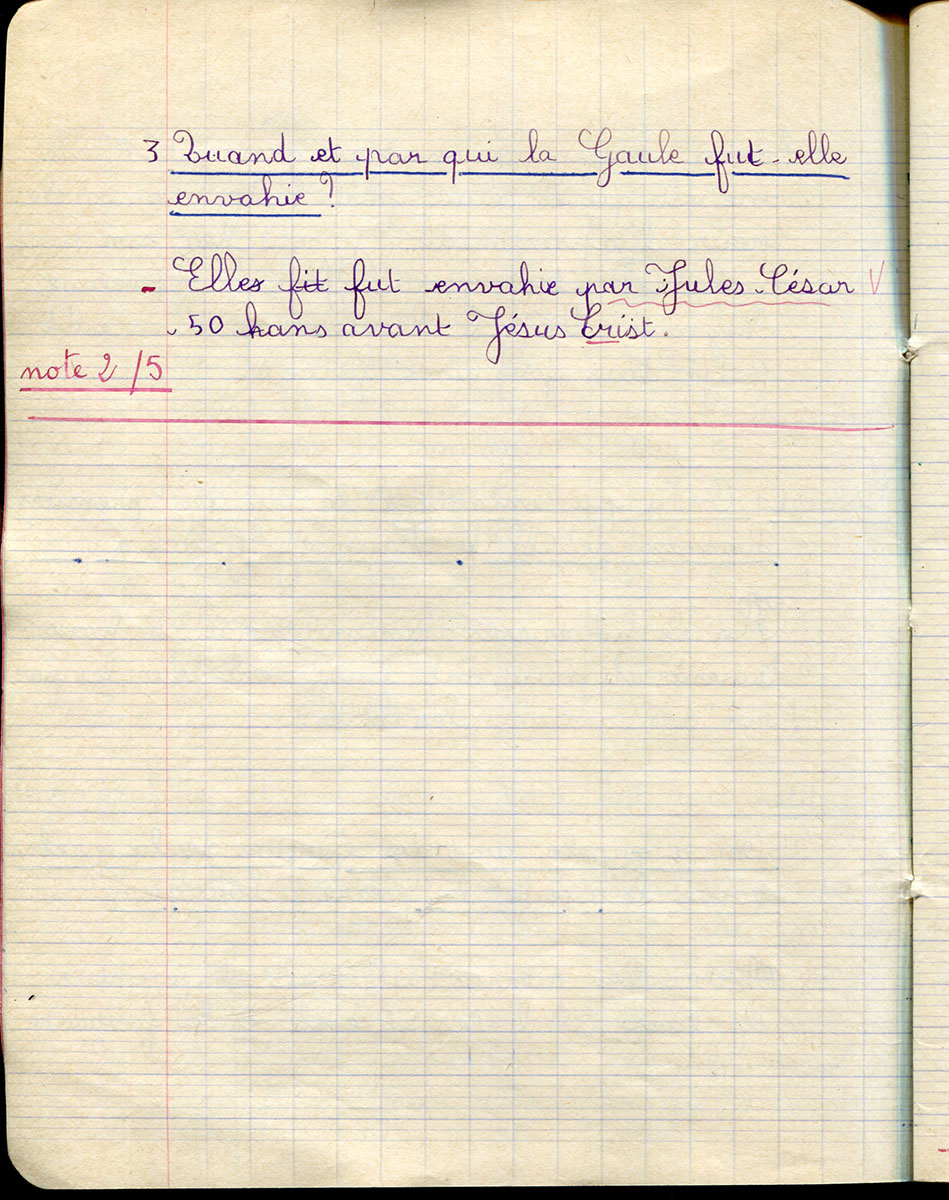 3 Quand et par qui la Gaule fut-elle
envahie ?
- Elles fit fut envahie par Jules César
50 hans avant Jésus Crist.
note 2/5